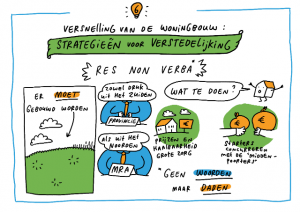 6
VERSNELLING VAN DE WONINGBOUW:
STRATEGIEËN VOOR VERSTEDELIJKING
RES NON VERBA*
ER MOET
GEBOUWD WORDEN
ZOWEL DRUK
UIT HET ZUIDEN
PROVINCIE
ALS UIT HET
NOORDEN
MRA
WAT TE DOEN?
PRIJZEN EN
HAALBAARHEID
GROTE ZORG
€
€
STARTERS
CONCURREREN
MET DE "MIDDEN-
*GEEN WOORDEN
MAAR DADEN